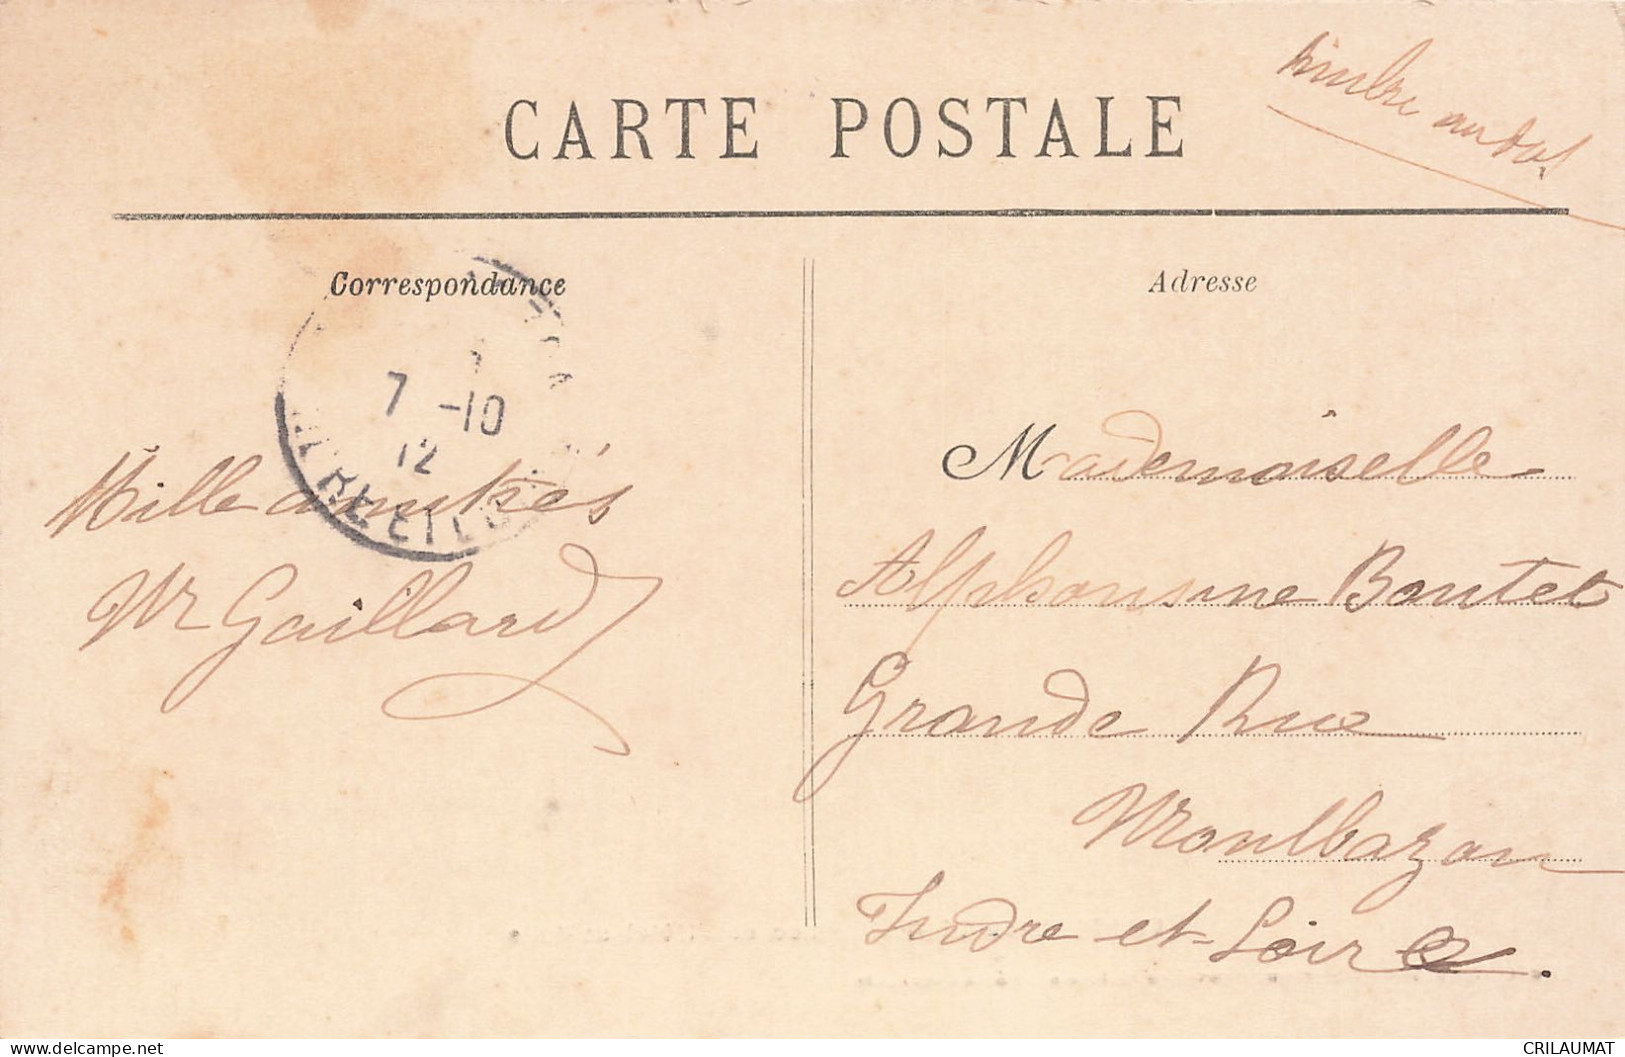 timbre au dos
CARTE POSTALE
Correspondance
Adresse
7 -10
12
Mille amitiés
M Gaillard
Mademoiselle
Alphonsine Boutet
Grande Rue
Montbazon
Indre et Loire.
www.delcampe.net
CRILAUMAT